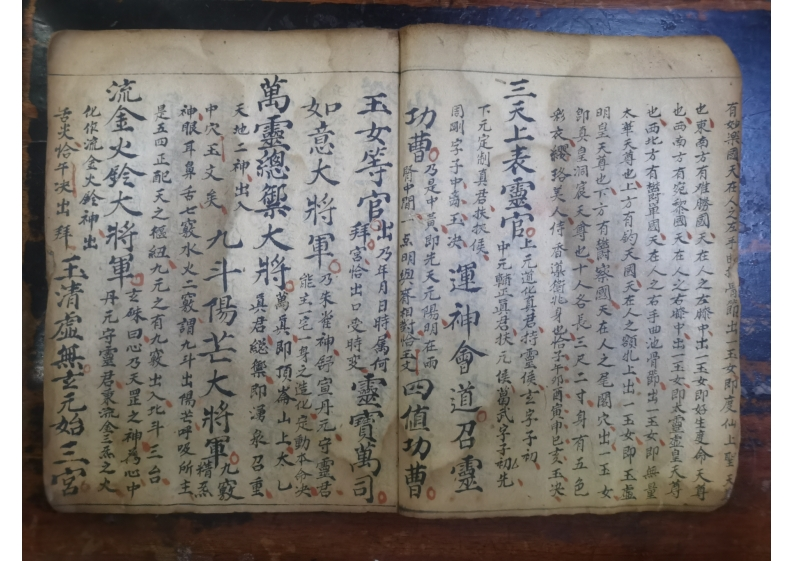 有好樂國天在人之左手曲池骨節出一玉女即度仙上聖天
也東南方有難勝國天在人之左膝中出一玉女即好生度命天尊
也西南方有宛黎國天在人之右膝中出一玉女即太靈虛皇天尊
也西北方有欝單國天在人之右手曲池骨節出一玉女即無量
太華天尊也上方有鈞天國天在人之顖𫩠上出一玉女即玉虛
明皇天尊也下方有欝察國天在人之尾閭穴出一玉女
即真皇洞神天尊也十人各長三尺二寸身有五色
彩衣纓珞美人侍香滿衛兆身也恰子午卯酉寅申巳亥玉决
三天上表靈官上元道化真君持靈侯玄字子初
中元䕶正真君扶元侯葛武字子初先
下元定制真君扶挍侯
周剛字子中尚玉决
運神會道召靈
功曹乃是中黃即先天元陽明在兩
脐中間一点明
四值功曹
玉女等官出乃年月日時属何
拜宮恰出口受時交
靈寶萬司
如意大將軍乃朱雀神舒宣丹元守靈君
能主一宅一身之造化定動本命决
萬靈總禦大將萬真即頂崙山上太乚
真君総衛即湧泉召重
天地二神出入
中穴玉文矣
九斗陽芒大將軍九竅
神眼耳鼻舌七竅水火二竅謂九斗出陽芒呼吸所主
是五四正配天之樞紐九元之有九竅出入北斗三台
流金火鈴大將軍玄科曰心乃天罡之神為心中
丹元守靈君秉流金三炁之火
化作流金火鈴神出
舌尖恰午决出拜
玉清虛無玄元始三宮